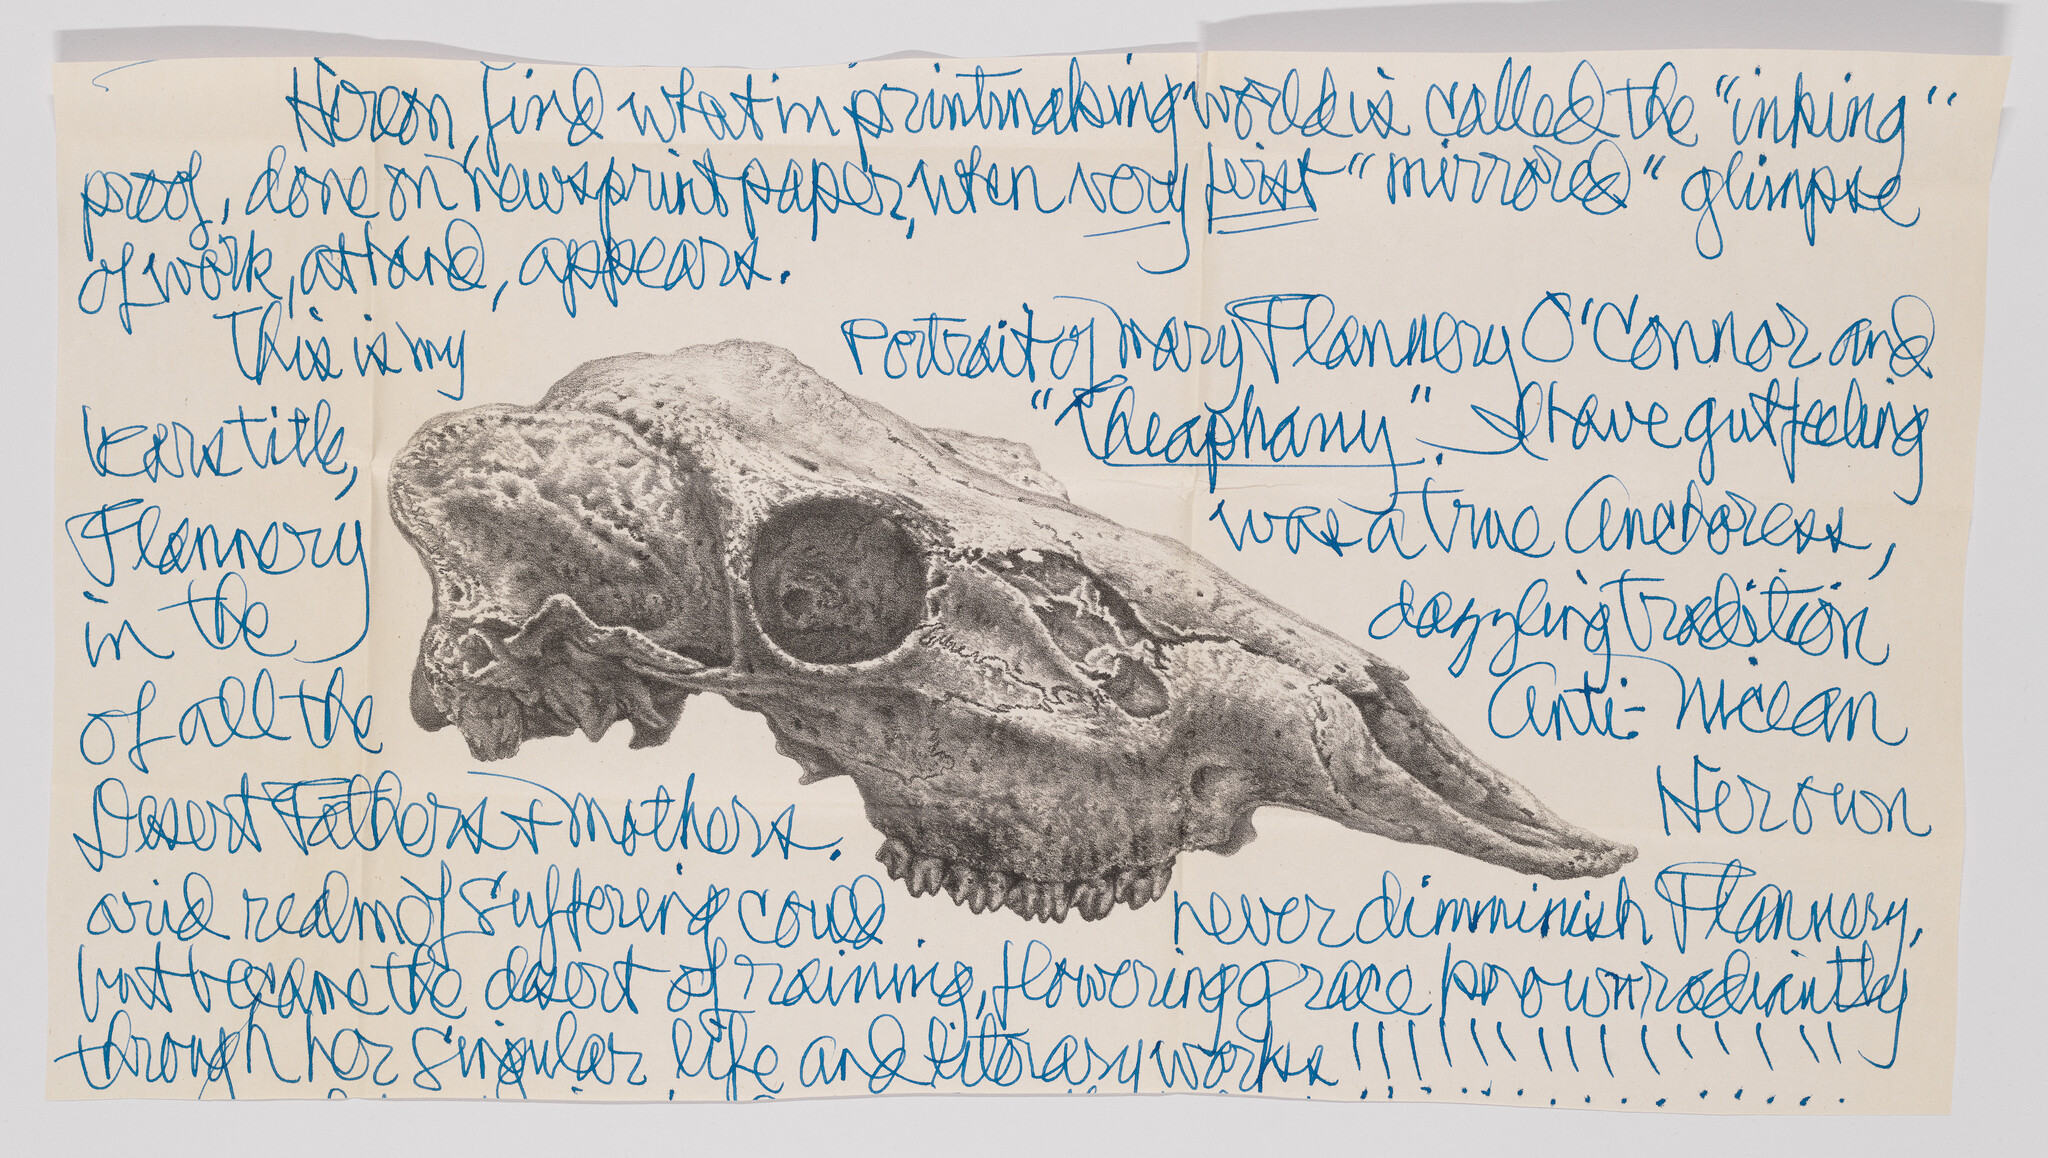 Hereon, find what in printmaking world is called the "inking"
proof, done on newsprint paper, when very first "mirrored" glimpse
of work, at hand, appears.
This is my Portrait of Mary Flannery O'Connor and
bears title, "Theaphany". I have gut feeling
Flannery was a true Anchoress,
in the dazzling tradition
of all the Anti-Nicean
Desert Fathers + Mothers. Her own
arid realm of suffering could never dimminish Flannery,
but became the desert of raining, flowering grace prown radiantly
through her singular life and literary works !!!!!!!!!!!!!!!!